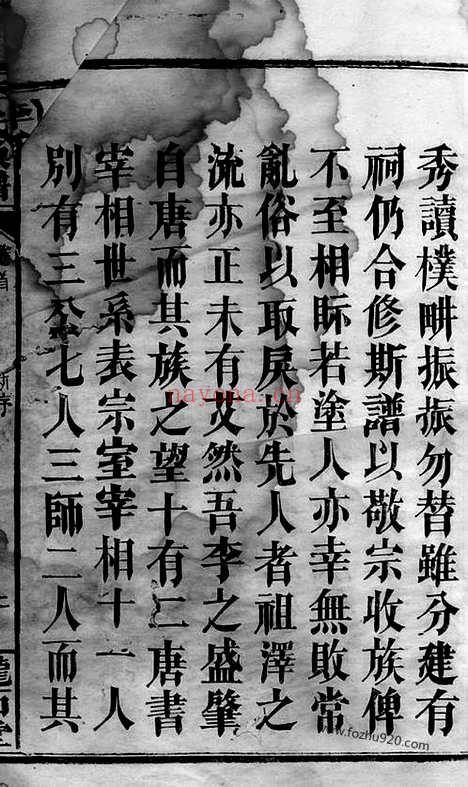 秀讀樸畊振振勿替雖分建有
祠仍合修斯譜以敬宗收族俾
不至相眎若塗人亦幸無敗常
亂俗以取戾於先人者祖澤之
流亦正未有艾然吾李之盛肇
自唐而其族之望十有二唐書
宰相世系表宗室宰相十一人
別有三公七人三師二人而其
新序
nayona.cn
www.fozhu920.com